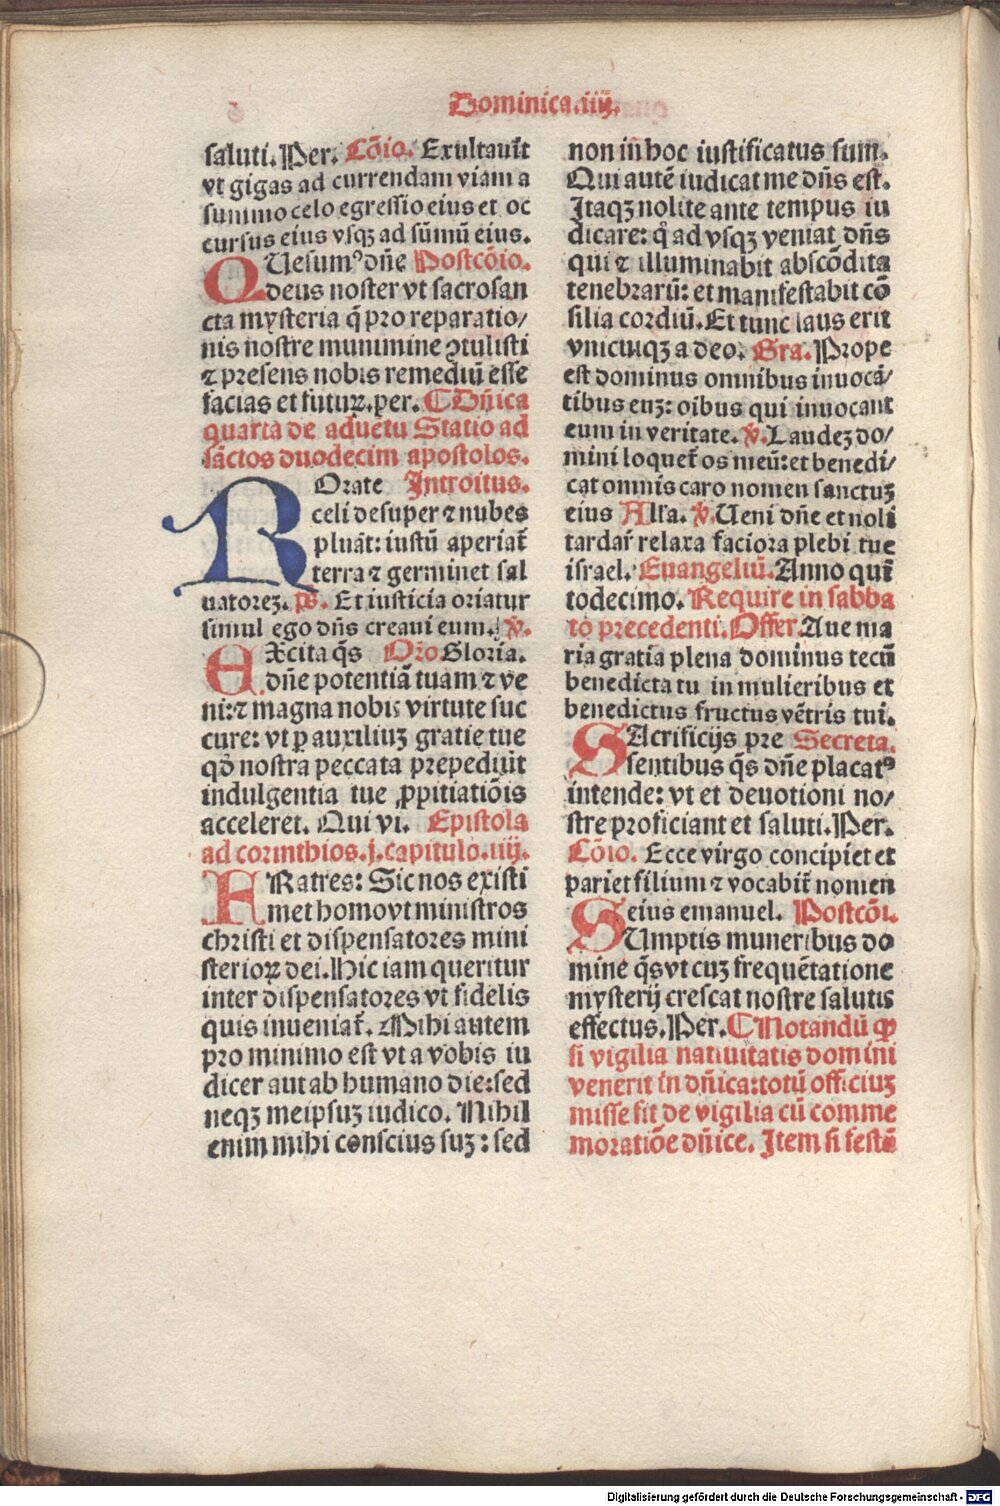 Dominica.iiij.
saluti. Per. Cōio. Exultauit
vt gigas ad currendam viam a
summo celo egressio eius et oc
cursus eius vsqꝫ ad sūmū eius.
QUesumꝰ dn̄e Postcōio.
deus noster vt sacrosan
cta mysteria q̄ pro reparatio/
nis nostre munimine ꝯtulisti
⁊ presens nobis remediū esse
facias et futuꝝ. per. ¶ Dn̄ica
quarta de aduētu Statio ad
sāctos duodecim apostolos.
ROrate Introitus.
celi desuper ⁊ nubes
pluāt: iustū aperiat̄
terra ⁊ germinet sal
uatoreꝫ. ps. Et iusticia oriatur
simul ego dn̄s creaui eum. ꝟ.
EXcita q̄s Or̄o Gloria.
dn̄e potentiā tuam ⁊ ve
ni: ⁊ magna nobis virtute suc
curre: vt ꝑ auxiliuꝫ gratie tue
qď nostra peccata prepediūt
indulgentia tue ꝓpitiatiōis
acceleret. Qui vi. Epistola
ad corinthios. j. capitulo. iiij.
FRatres: Sic nos existi
met homo vt ministros
christi et dispensatores mini
sterioꝝ dei. Hic iam queritur
inter dispensatores vt fidelis
quis inueniat̄. Mihi autem
pro minimo est vt a vobis iu
dicer aut ab humano die: sed
neqꝫ meipsuꝫ iudico. Nihil
enim mihi conscius suꝫ: sed
non in hoc iustificatus sum.
Qui autē iudicat me dn̄s est.
Itaqꝫ nolite ante tempus iu
dicare: q̄ ad vsqꝫ veniat dn̄s
qui ⁊ illuminabit abscōdita
tenebrarū: et manifestabit cō
silia cordiū. Et tunc laus erit
vnicuiqꝫ a deo. Gra. Prope
est dominus omnibus inuocā/
tibus euꝫ: oībus qui inuocant
eum in veritate. ꝟ. Laudeꝫ do/
mini loquet̄ os meū: et benedi/
cat omnis caro nomen sanctuꝫ
eius Alľa. ꝟ. Ueni dn̄e et noli
tardar̄ relaxa faciora plebi tue
israel. Euangeliū. Anno quī
todecimo. Require in sabba
to precedenti. Offer. Aue ma
ria gratia plena dominus tecū
benedicta tu in mulieribus et
benedictus fructus vētris tui.
SAcrificijs pre Secreta.
sentibus q̄s dn̄e placatꝰ
intende: vt et deuotioni no/
stre proficiant et saluti. Per.
Cōio. Ecce virgo concipiet et
pariet filium ⁊ vocabit̄ nomen
eius emanuel. Postcōi.
SUmptis muneribus do
mine q̄s vt cuꝫ frequētatione
mysterij crescat nostre salutis
effectus. Per. ¶ Notandū ꝙ
si vigilia natiuitatis domini
venerit in dn̄ica: totū officiuꝫ
misse fit de vigilia cū comme
moratiōe dn̄ice. Item si festū
Digitalisierung gefördert durch die Deutsche Forschungsgemeinschaft - DFG